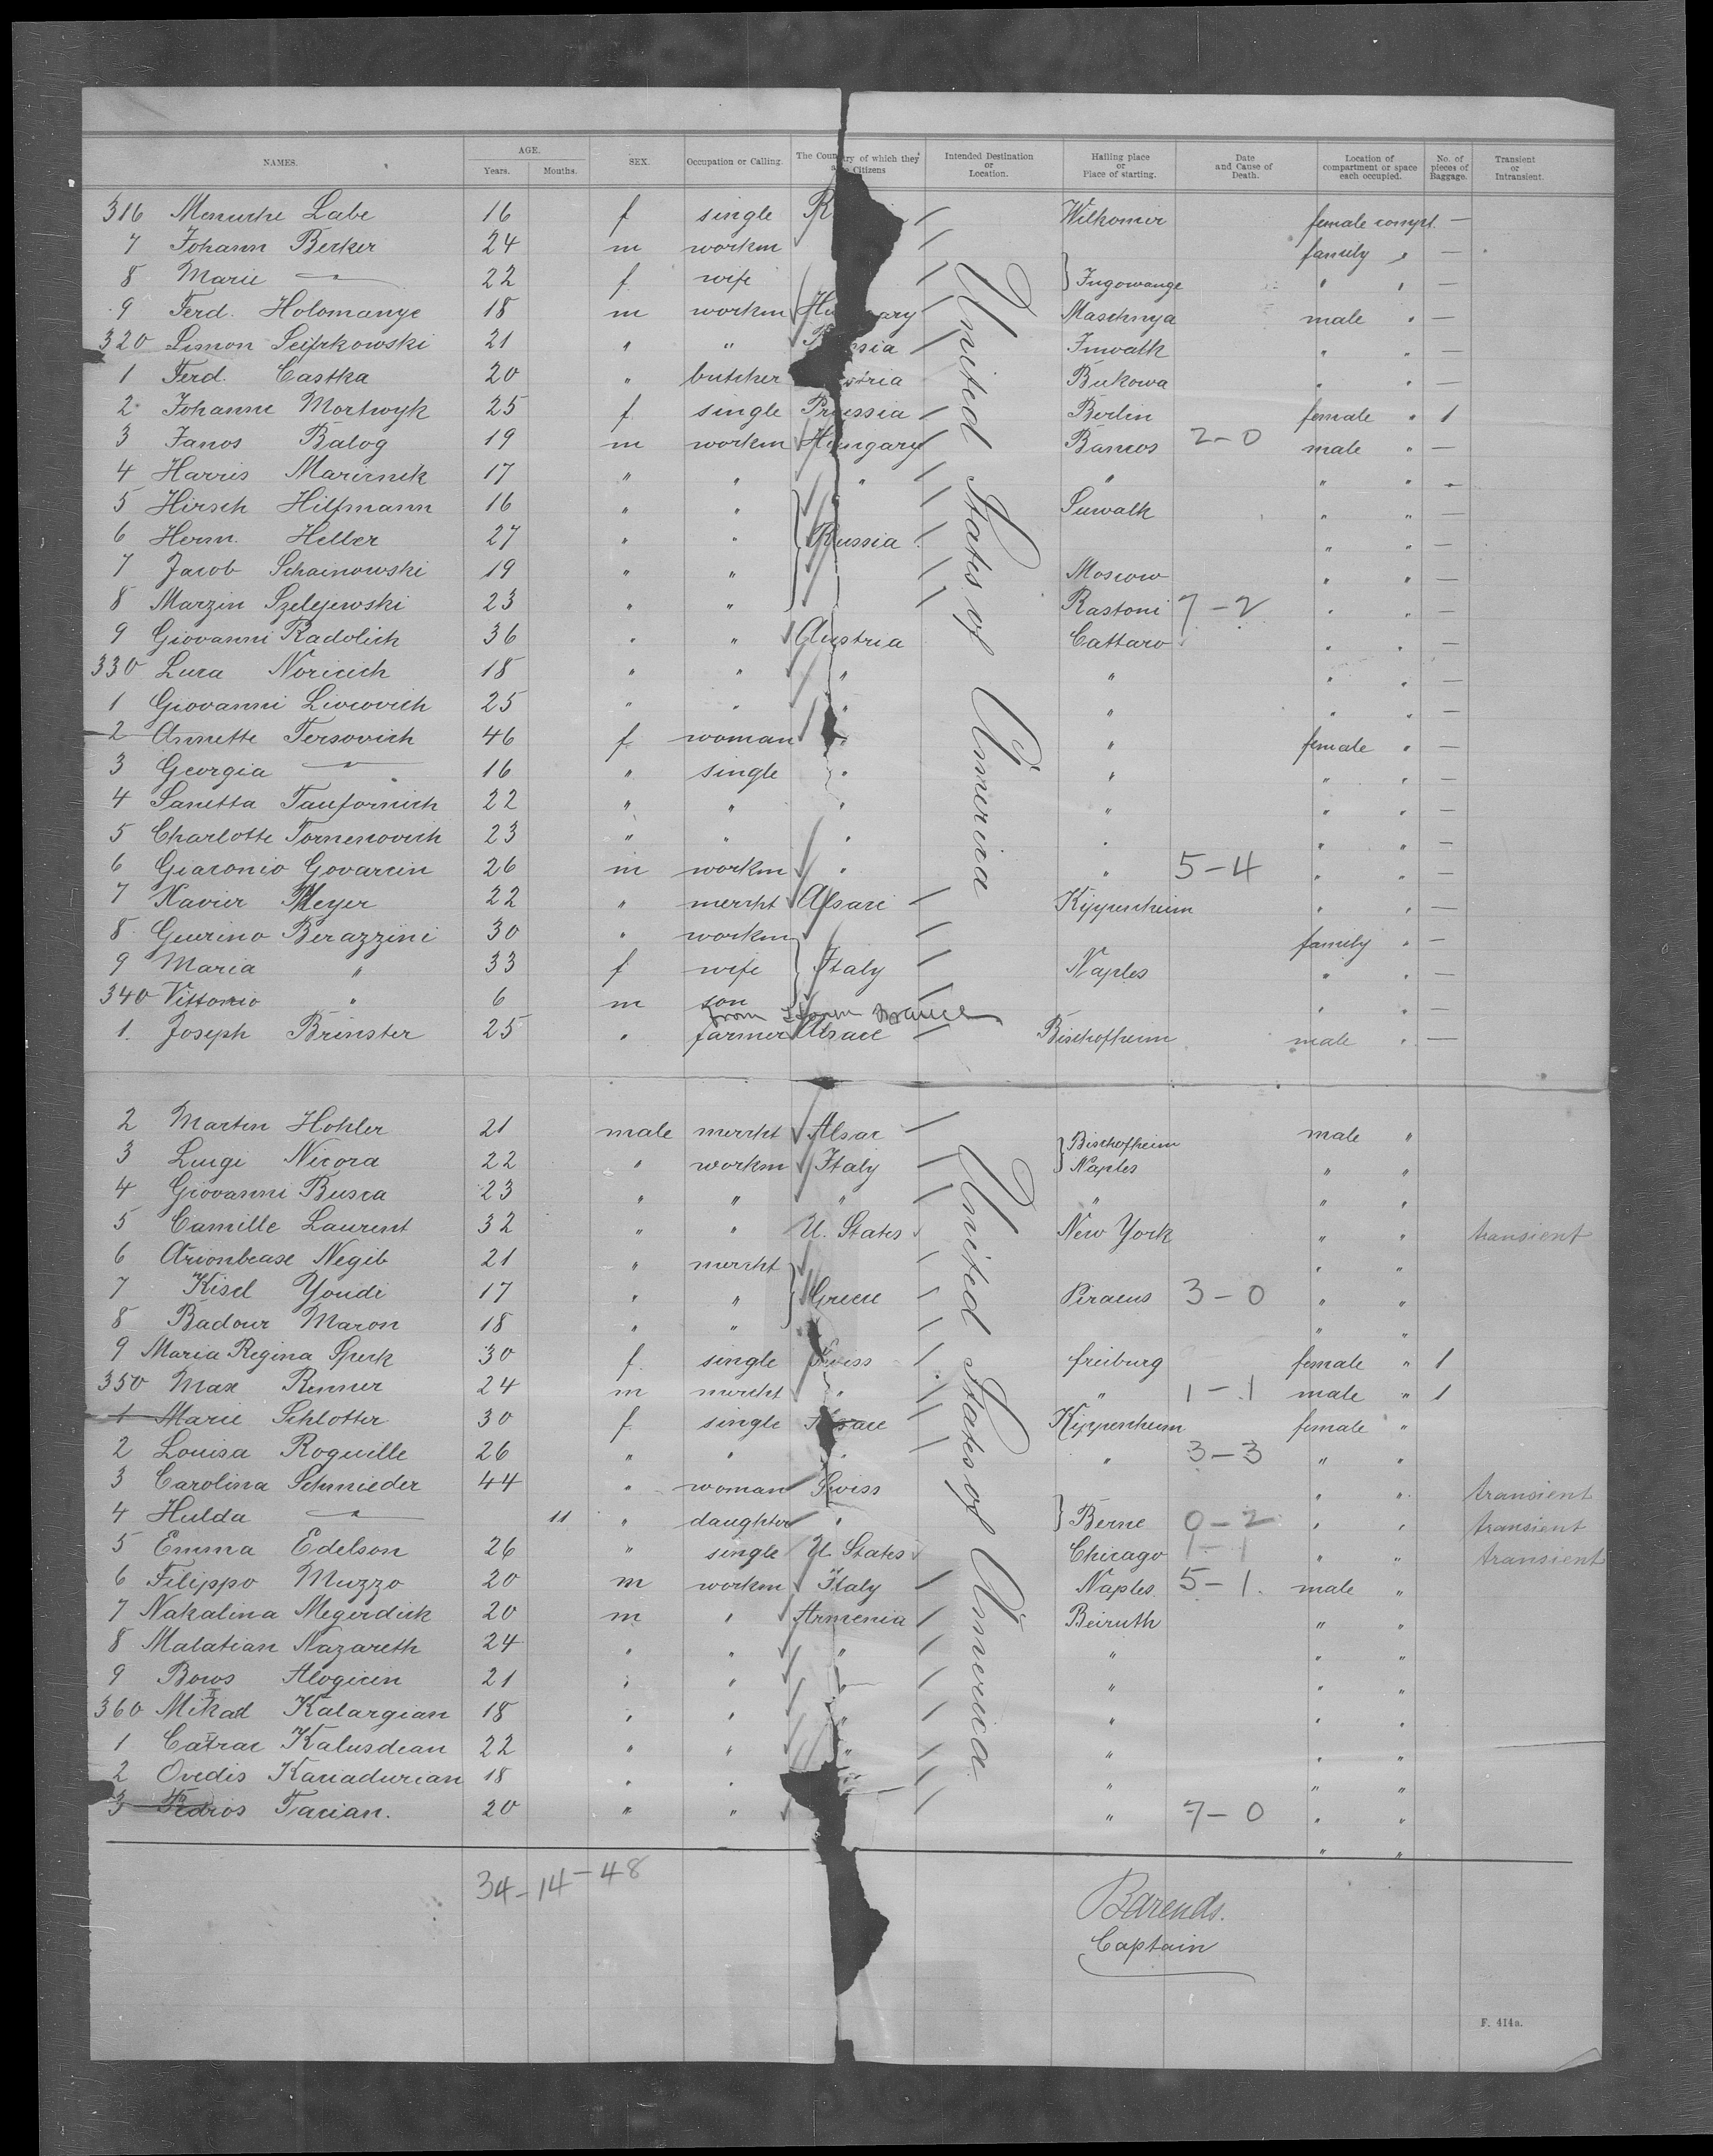 NAMES. AGE. Years. Months. SEX. Occupation or Calling. The Country of which they are Citizens Intended Destination or Location. Hailing place or Place of starting. Date and Cause of Death. Location of compartment or space each occupied. No. of pieces of Baggage. Transient or Intransient.
316 Menuche Labe 16 f single R Wilkomir female compt. —
7 Johann Becker 24 m workm family " —
8 Marie — 22 f wife } Ingowange " " —
9 Ferd. Holomanye 18 m workm Hu ary Maschnya male " —
320 Simon 21 " " R ssia " " —
1 Ferd. Castka 20 " butcher stria Bukowa " " —
2 Johanne Mortwyk 25 f single Prussia Berlin female " 1
3 Janos Balog 19 m workm Hungary Bamos 2-0 male " —
4 Harris 17 " " " " " " "
5 Hirsch Hilfmann 16 " " Suwalk " " —
6 Herm. Heller 27 " " } Russia " " —
7 Jacob Schainowski 19 " " Moscow " " —
8 Marzin Szelejewski 23 " " Rastoni 7-2 " " —
9 Giovanni Radolich 36 " " Austria Cattaro " " —
330 Luca 18 " " " " " " —
1 Giovanni 25 " " " " " " —
2 Annette Tersovich 46 f woman " " female " —
3 Georgia — 16 " single " " " " —
4 Sanetta 22 " " " " " " —
5 Charlotte Tomenovich 23 " " " " " " —
6 Giaconio Govarcin 26 m workm " " 5-4 " " —
7 Xavier Meyer 22 " mercht Alsace Kippenheim " " —
8 Guerino Berazzini 30 " workm family " —
9 Maria " 33 f wife } Italy Naples " " —
340 Vittorio " 6 m son " " —
from France
1. Joseph Brinster 25 " farmer Alsace Bischofheim male " —
United States of America
2 Martin Hohler 21 male mercht Alsac } Bischofheim male "
3 Luigi Nicora 22 " workm Italy Naples " "
4 Giovanni Busca 23 " " " " " "
5 Camille Laurent 32 " " U. States New York " " transient
6 Negib 21 " mercht " "
7 Kisel Youdi 17 " " } Greece Piraeus 3-0 " "
8 Badour Maron 18 " " " "
9 Maria Regina Speck 30 f single Swiss freiburg female " 1
350 Max Renner 24 m mercht " " 1-1 male " 1
1 Marie Schlotter 30 f single Alsace Kippenheim female "
2 Louisa Roquille 26 " " " " 3-3 " "
3 Carolina Schmieder 44 " woman Swiss " " transient
4 Hulda — 11 " daughter " } Berne 0-2 " " transient
5 Emma Edelson 26 " single U. States Chicago 1-1 " " transient
6 Filippo Muzzo 20 m workm Italy Naples 5-1. male "
7 Nakalina Megerdick 20 m " Armenia Beiruth " "
8 Malatian Nazareth 24 " " " " " "
9 Bows Alogicin 21 " " " " " "
360 Kalargian 18 " " " " " "
1 Kalusdean 22 " " " " " "
2 Ovedis Kanadurian 18 " " " " " "
3 Tacian. 20 " " " 7-0 " "
" "
United States of America.
34-14-48
Barends.
Captain
F. 414a.